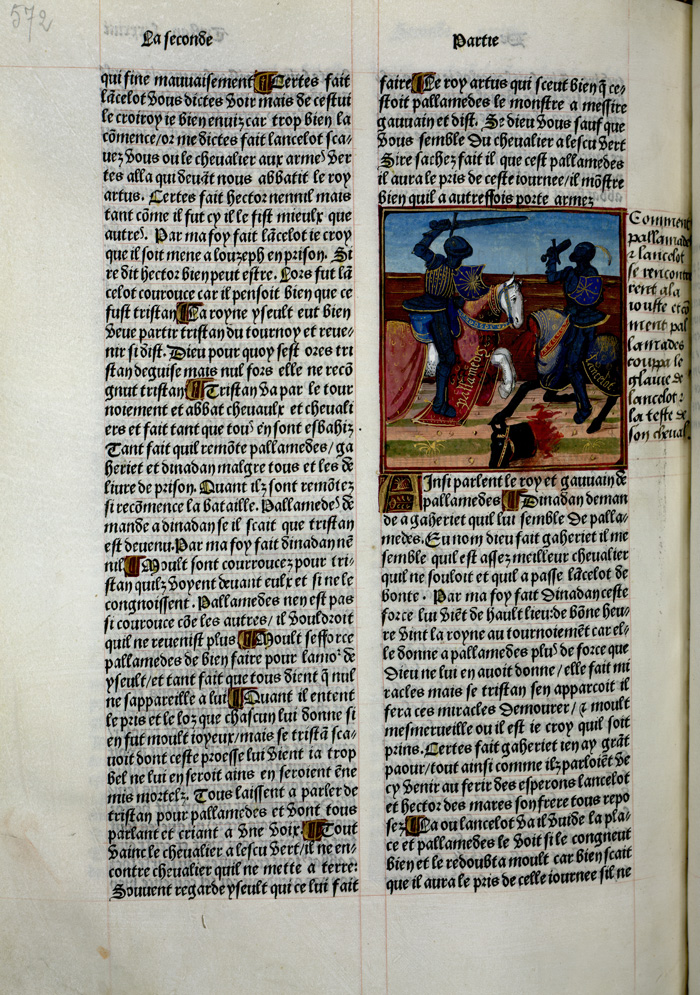 572
La seconde
qui fine mauuaisement Certes fait
lācelot vous dictes voir mais de cestui
le croiroy ie bien enuiz car trop bien la
cōmence/or me dictes fait lancelot sca-
uez vous ou le cheualier aux armes ver
tes alla qui deuāt nous abbatit le roy
artus. Certes fait hector nennil mais
tant cōme il fut cy il le fist mieulx que
autre. Par ma foy fait lācelot ie croy
que il soit mene a louzeph en prison. Si
re dit hector bien peut estre. Lors fut lā
celot courouce car il pensoit bien que ce
fust tristan La royne yseult eut bien
veue partir tristan du tournoy et reue-
nir si dist. Dieu pour quoy sest ores tri
stan deguise mais nul fors elle ne recō
gnut tristan Tristan va par le tour
noiement et abbat cheuaulx et cheuali
ers et fait tant que tous en sont esbahiz.
Tant fait quil remōte pallamedes/ga
heriet et dinadan malgre tous et les de
liure de prison. Quant ilz sont remōtez
si recōmence la bataille. Pallamedes de
mande a dinadan se il scait que tristan
est deuenu. Par ma foy fait dinadan nē
nil. Moult sont courroucez pour tri-
stan quilz voyent deuant eulx et si ne le
congnoissent. Pallamedes nen est pas
si courouce cōe les autres/il vouldroit
quil ne reuenist plus Moult sefforce
pallamedes de bien faire pour lamor de
yseult/et tant fait que tous dient q̄ nul
ne sappareille a lui Quant il entent
le pris et le loz que chascun lui donne si
en fut moult ioyeux/mais se tristā sca-
uoit dont ceste proesse lui vient ia trop
bel ne lui en seroit ains en seroient ēne
mis mortelz. Tous laissent a parler de
tristan pour pallamedes et vont tous
parlant et criant a vne voix Tout
vainc le cheualier a lescu vert/il ne en-
contre cheualier quil ne mette a terre:
Souuent regarde yseult qui ce lui fait
Partie
faire Le roy artus qui sceut bien q̄ ce-
stoit pallamedes le monstre a messire
gauuain et dist. Se dieu vous sauf que
vous semble du cheualier a lescu vert
Sire sachez fait il que cest pallamedes
il aura le pris de ceste iournee/il mōstre
bien quil a autreffois porte armez
Comment
pallamades
z lancelot
se rencont
rent a la
iouste et cō
ment pal
lamades
couppa le
glaiue de
lancelot z
la teste de
son cheual
pallamedes
lancelot
Ainsi parlent le roy et gauuain de
pallamedes Dinadan deman
de a gaheriet quil lui semble de palla-
medes. Eu nom dieu fait gaheriet il me
semble quil est assez meilleur cheualier
quil ne souloit et quil a passe lācelot de
bonte. Par ma foy fait Dinadan ceste
force lui viēt de hault lieu: de bōne heu-
re vint la royne au tournoiement car el-
le donne a pallamedes plus de force que
Dieu ne lui en auoit donne/elle fait mi
racles mais se tristan sen apparcoit il
fera ces miracles demourer/& moult
mesmerueille ou il est ie croy quil soit
prins. Certes fait gaheriet ien ay grāt
paour/tout ainsi comme ilz parloiēt de
cy venir au ferir des esperons lancelot
et hector des mares son frere tous repo
sez La ou lancelot va il vuide la pla-
ce et pallamedes le voit si le congneut
bien et le redoubta moult car bien scait
que il aura le pris de celle iournee sil ne